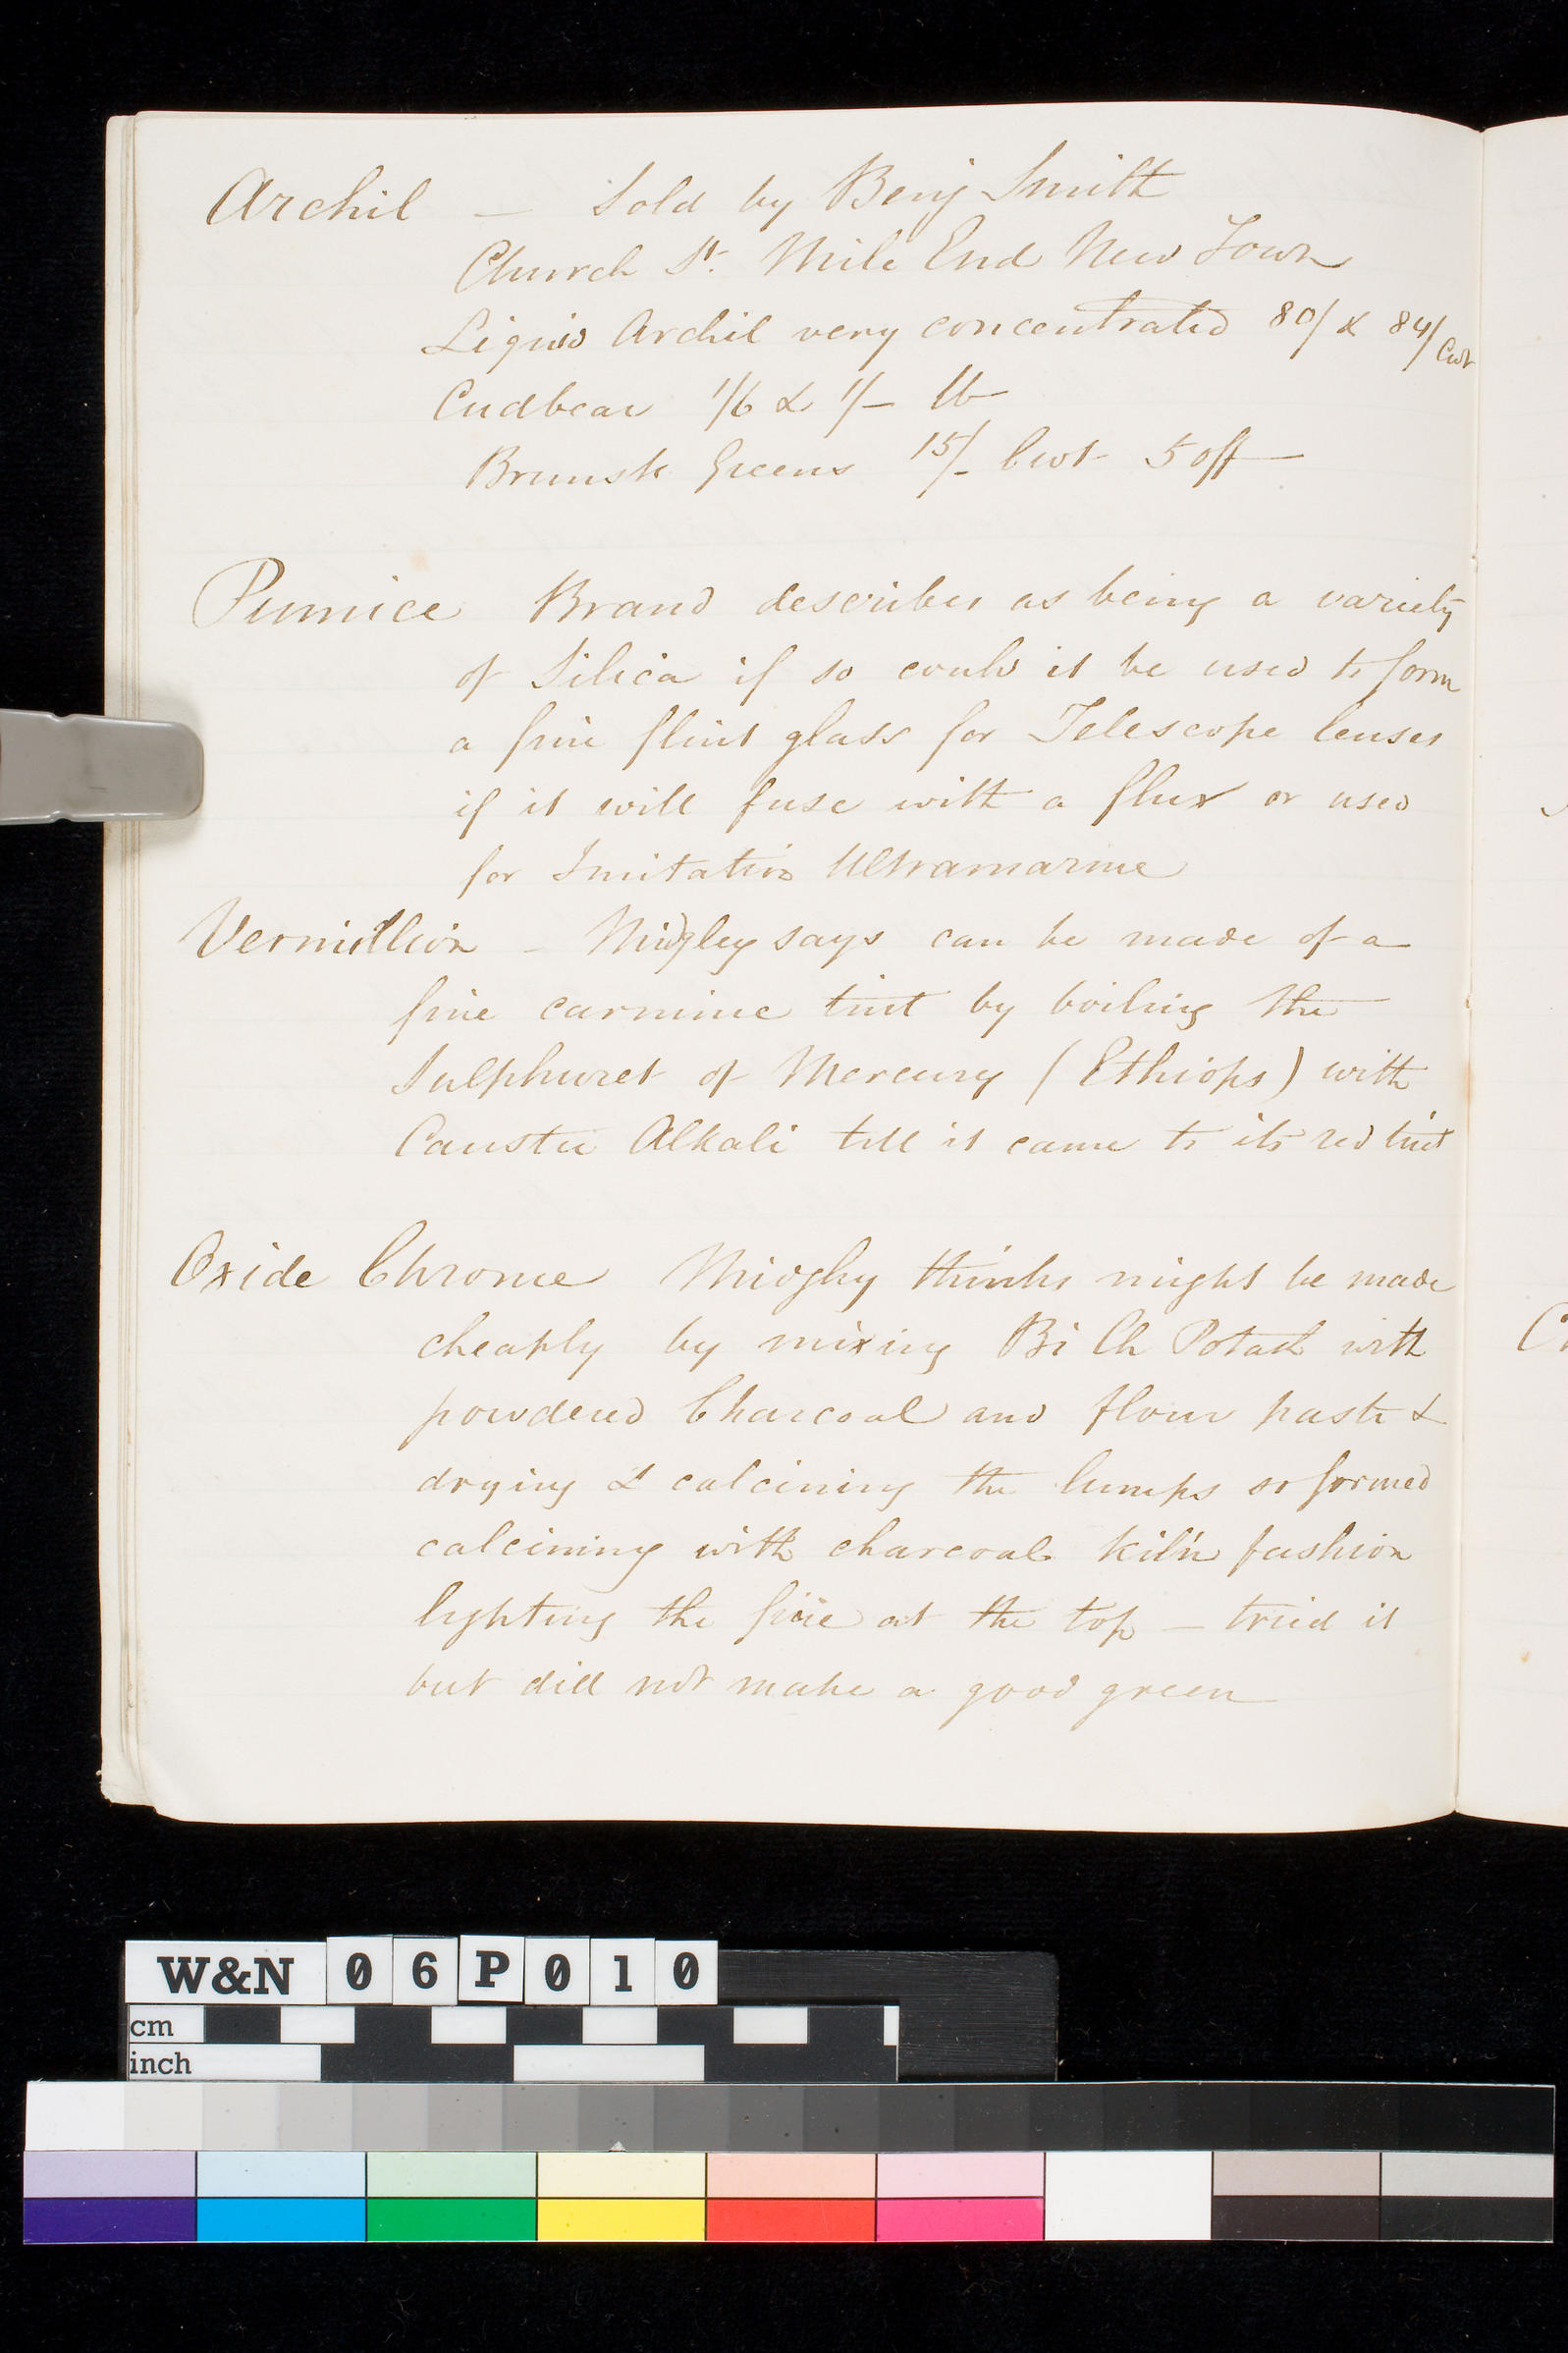 Archil — Sold by Benj Smith
Church St. Mile End New Town
Liquid Archil very concentrated 80/ & 84/ Cwt
Cudbear 1/6 & 1/– lb
Brunsk Greens 15/- Cwt 5 off
Pumice Brand describes as being a variety
of Silica if so could it be used to form
a fine flint glass for Telescope lenses
if it will fuse with a flux or used
for Imitation Ultramarine
Vermillion – Midgley says can be made of a
fine carmine tint by boiling the
Sulphuret of Mercury (Ethiops) with
Caustic Alkali till it came to its red tint
Oxide Chrome Midgley thinks might be made
cheaply by mixing Bi Ch Potash with
powdered Charcoal and flour paste &
drying & calcining the lumps so formed
calcining with charcoal kil'n fashion
lighting the fire at the top – tried it
but did not make a good green
C
W&N 06P010
cm
inch